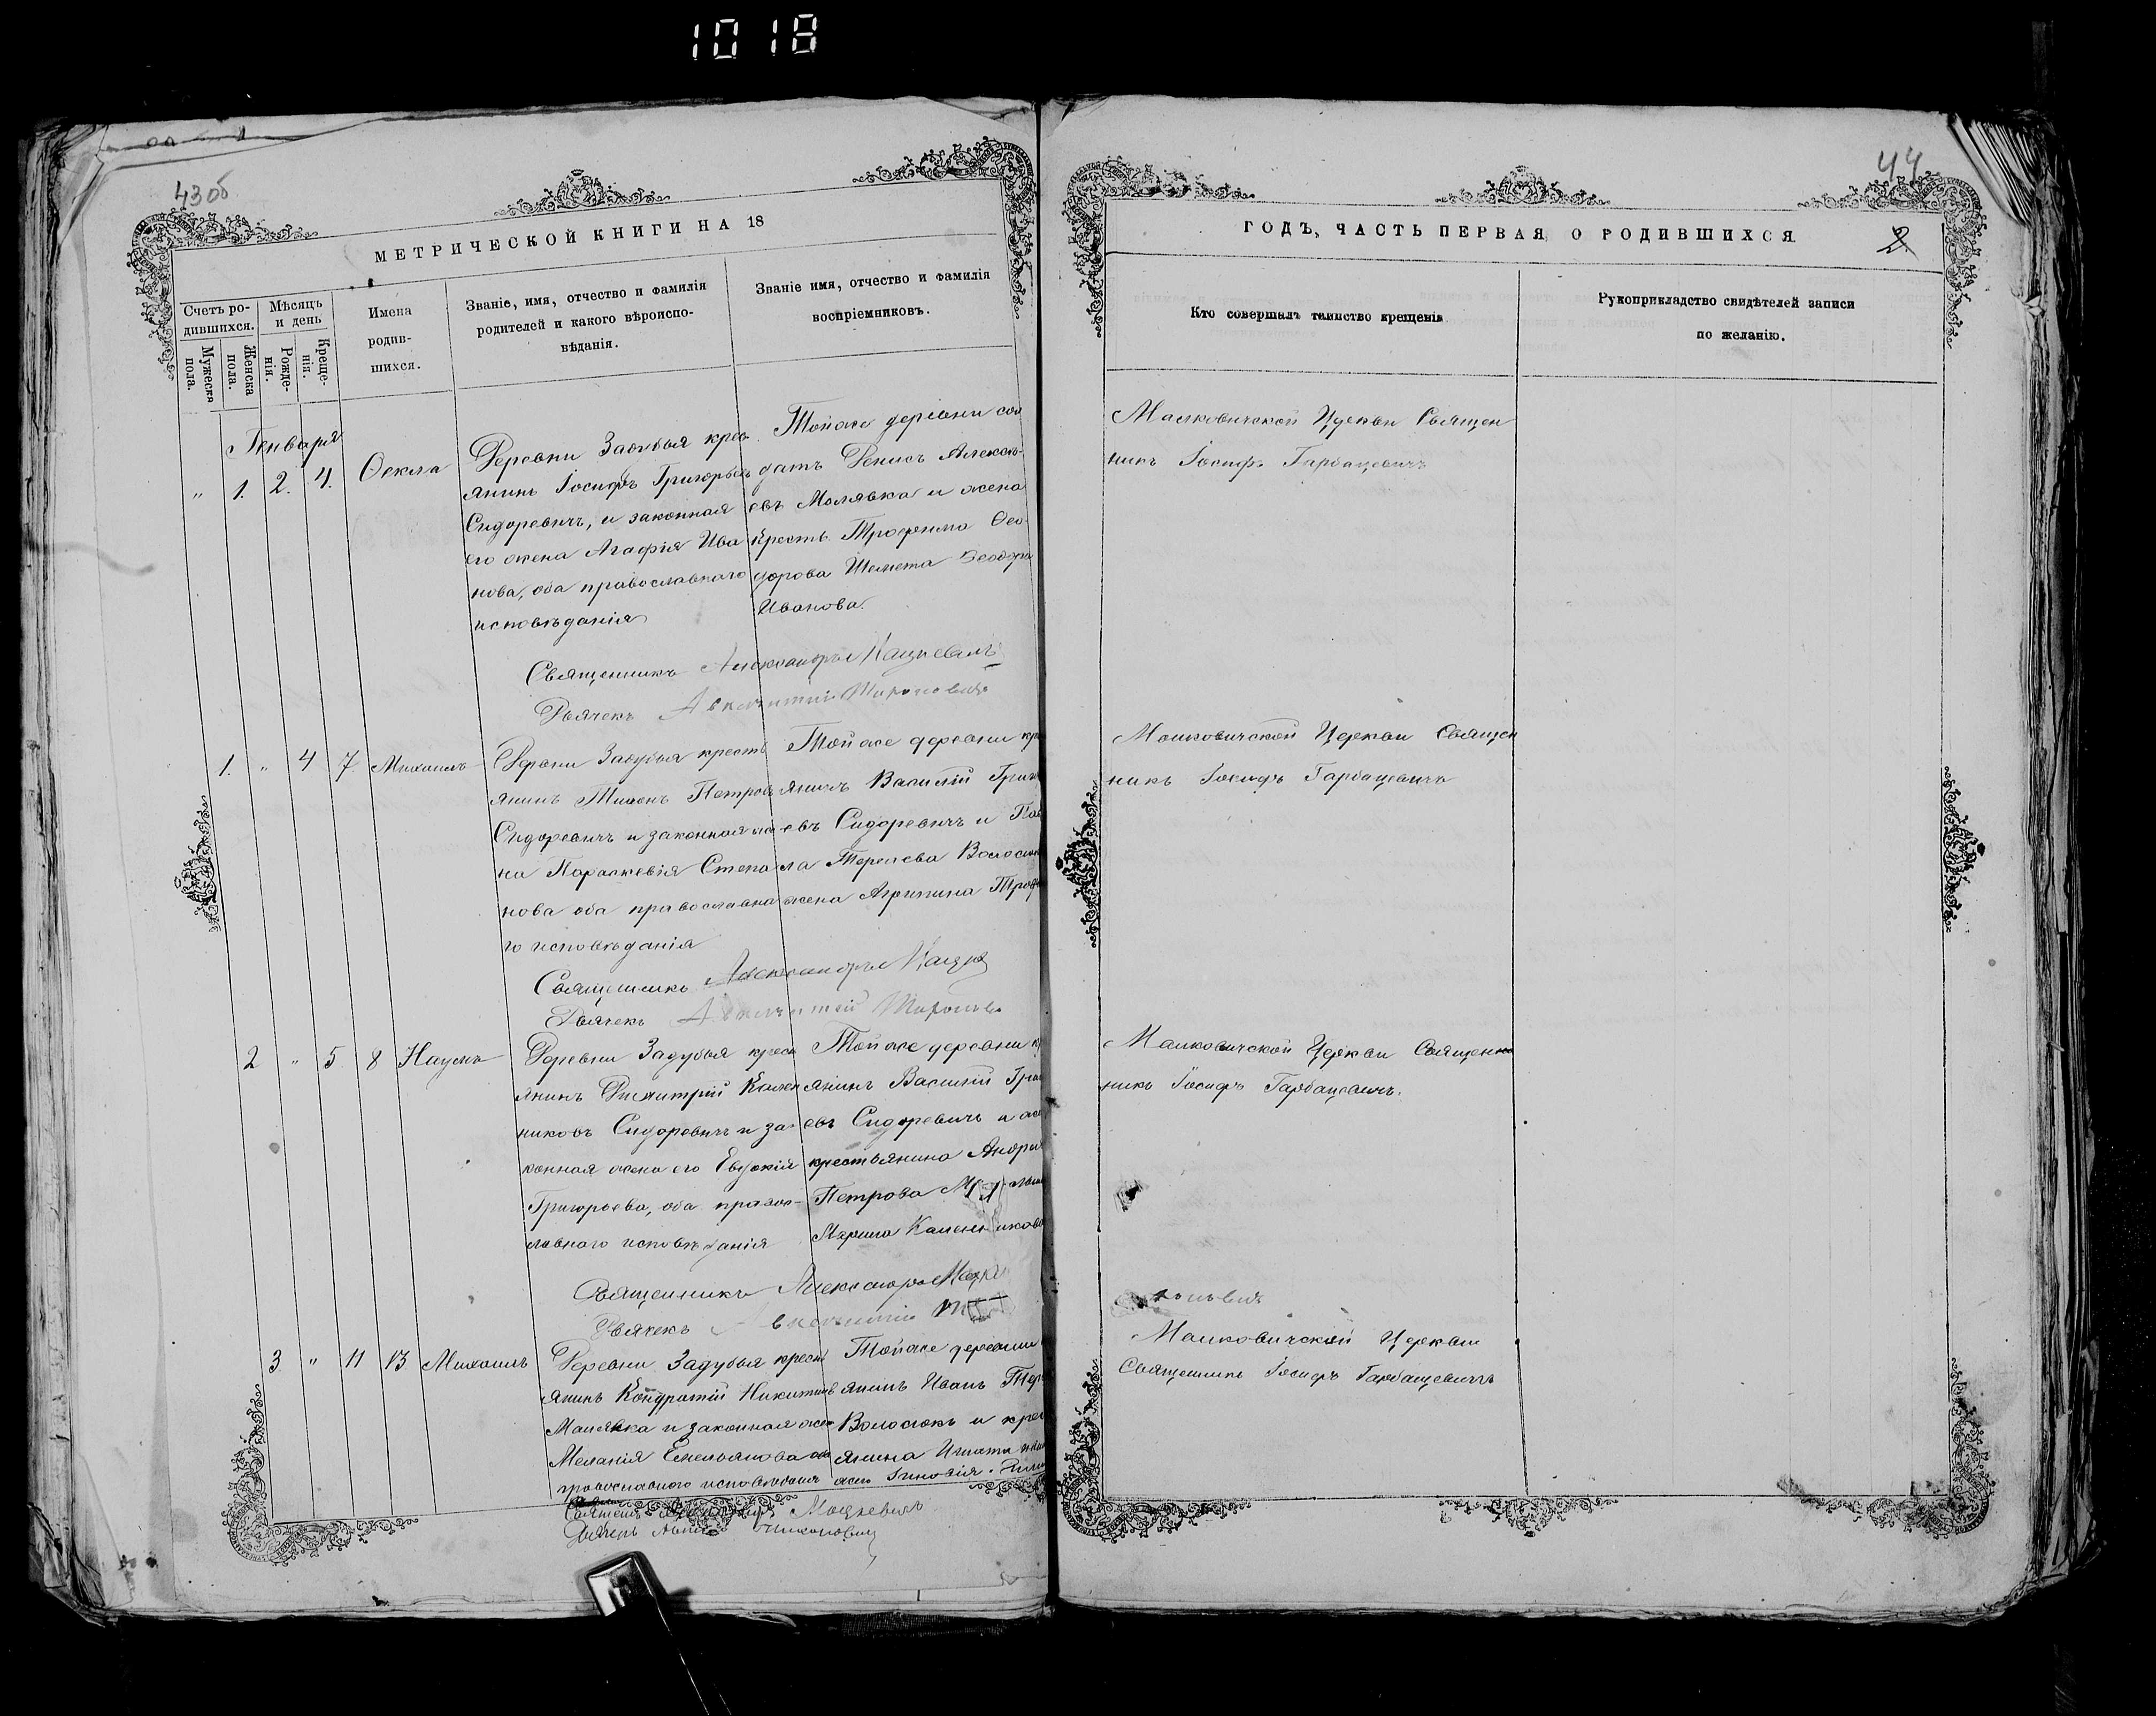 1018
43 об
МЕТРИЧЕСКОЙ КНИГИ НА 18
Счетъ ро-
дившихся.
Мужеска
пола.
Женска
пола.
Мѣсяцъ
и день
Рожде-
нія.
Креще-
нія.
Имена
родив-
шихся.
Званіе, имя, отчество и фамилія
родителей и какого вѣроиспо-
вѣданія.
Званіе имя, отчество и фамилія
воспріемниковъ.
Генваря
" 1. 2. 4. Ѳекла
Деревни Задубья крес
янинъ Іосифъ Григорьевъ
Сидоревичъ, и законная
его жена Агафія Ива
нова, оба православнаго
исповѣданія
Тойже деревни сол
датъ Денисъ Алексѣ-
евъ Малявка и жена
Крестъ. Трофима Ѳео
дорова Шемета Ѳеодора
Иванова.
Священникъ Александръ Мацкевичъ
Дьячекъ
1. " 4 7. Михаилъ
Деревни Задубья кресть
янинъ Тимонъ Петровъ
Сидоревичъ и законная же
на Параскевія Степа
нова оба православна
го исповѣданія
Тойже деревни кр
янинъ Василій Григ
евъ Сидоревичъ и Пав
ла Терентева Волосюк
жена Агрипина Троф
Священникъ Александръ Мацк
Дьячекъ
2 " 5 8 Наумъ
Деревни Задубья крест
янинъ Димитрій Кален
никовъ Сидоревичъ и за-
конная жена его Евдокія
Григорьева, оба правос-
лавнаго исповѣданія
Тойже деревни к
янинъ Василій Гри
евъ Сидоревичъ и же
крестьянина Андре
Петрова
Марина Каленникова
Священникъ Александръ Мацк
Дьячекъ
3 " 11 13 Михаилъ
Деревни Задубья крест
янинъ Кондратій Никитинъ
Малявка и законная жен
Меланія Емельянова оба
православнаго исповѣданія
Тойже деревни
янинъ Иванъ Тер
Волосюкъ и крес
янина Игната
жена
Священ Мацкевичъ
Дьячекъ
44
ГОДЪ, ЧАСТЬ ПЕРВАЯ, О РОДИВШИХСЯ
2
Кто совершалъ таинство крещенія
Рукоприкладство свидѣтелей записи
по желанію.
Малковичской Церкви Священ
никъ Іосифъ Гарбацевичъ
Малковичской Церкви Священ
никъ Іосифъ Гарбацевичъ
Малковичской Церкви Священ
никъ Іосифъ Гарбацевичъ.
Малковичской Церкви
Священникъ Іосифъ Гарбацевичъ